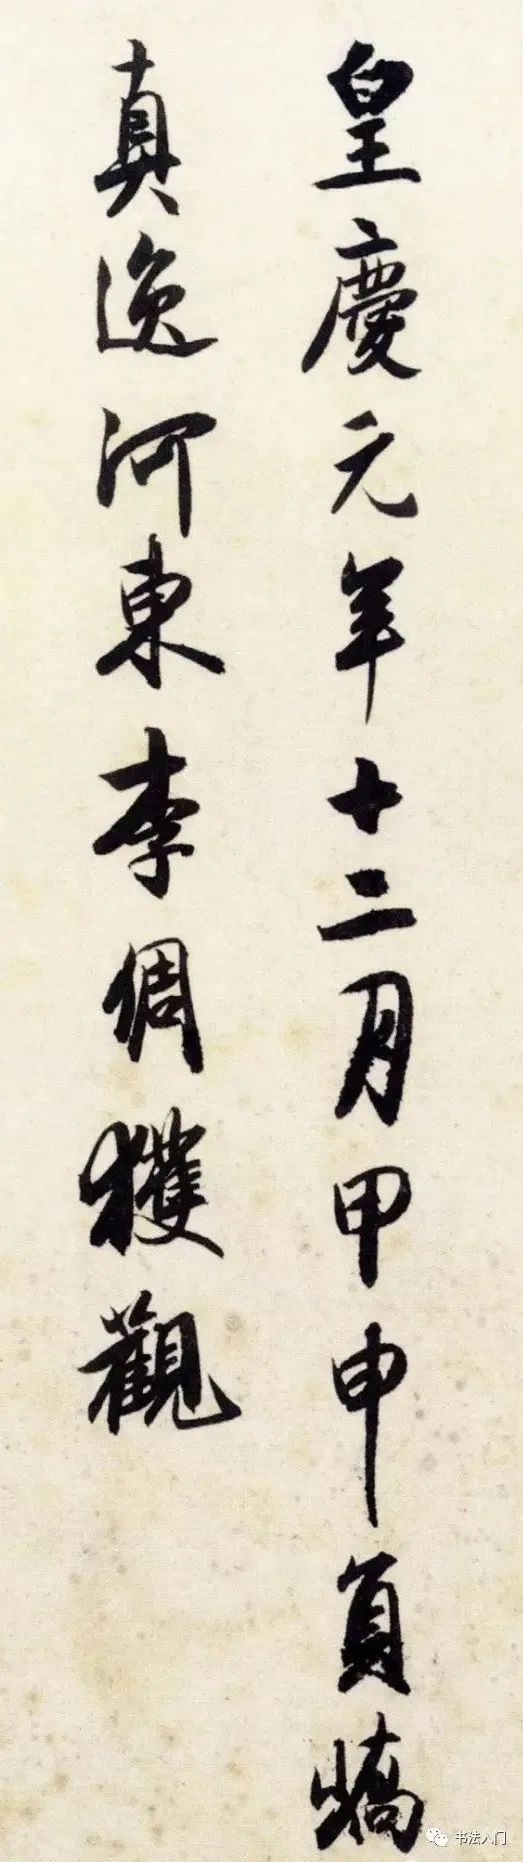 皇慶元年十二月甲申員嶠
真逸河東李倜獲觀
书法入门